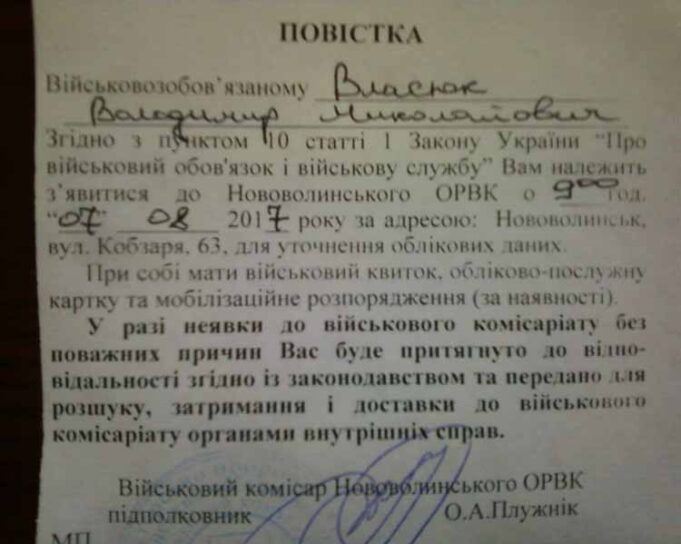 ПОВІСТКА
Військовозобов’язаному Власюк
Володимир Миколайович
Згідно з пунктом 10 статті 1 Закону України “Про
військовий обов'язок і військову службу” Вам належить
з’явитися до Нововолинського ОРВК о 9⁰⁰ год.
“07” 08 2017 року за адресою: Нововолинськ,
вул. Кобзаря, 63, для уточнення облікових даних.
При собі мати військовий квиток, обліково-послужну
картку та мобілізаційне розпорядження (за наявності).
У разі неявки до військового комісаріату без
поважних причин Вас буде притягнуто до відпо-
відальності згідно із законодавством та передано для
розшуку, затримання і доставки до військового
комісаріату органами внутрішніх справ.
Військовий комісар Нововолинського ОРВК
підполковник О.А.Плужнік
МП